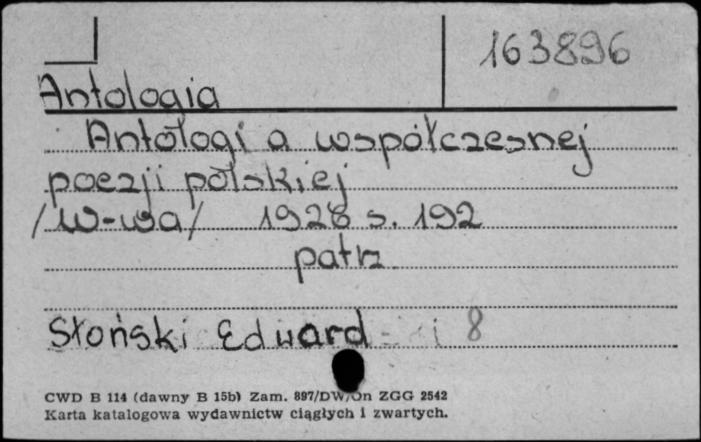 163896
Antologia
Antologia współczesnej
poezji polskiej
/W-wa/ 1928 s. 192
patrz
Słoński Edward i 8
CWD B 114 (dawny B 15b) Zam. 897/DW/On ZGG 2542
Karta katalogowa wydawnictw ciągłych i zwartych.